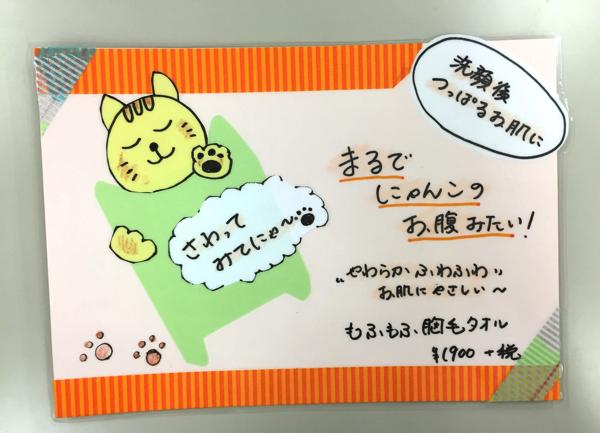 洗顔後
つっぱるお肌に
まるで
にゃんこの
お腹みたい!
さわって
みてにゃ〜
"やわらか ふわふわ"
お肌にやさしい〜
もふもふ胸毛タオル
¥1900 +税